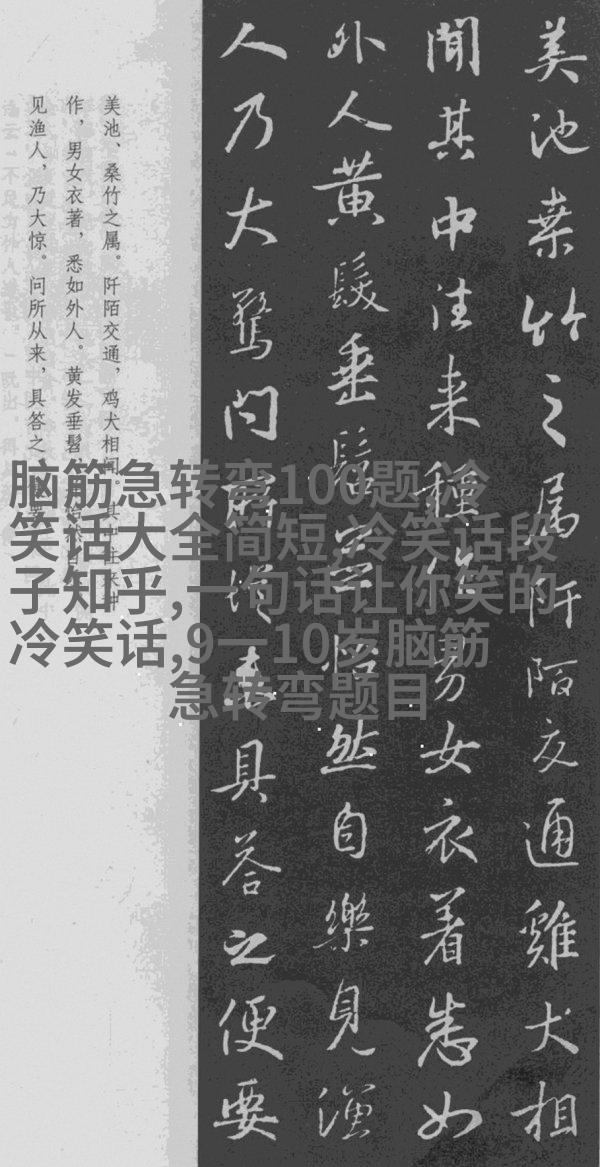 美池桒竹之属阡陌交通雞犬相
聞其中往来種作男女衣着悉如
外人黃髮垂髫並怡然自樂見漁
人乃大驚问所從来具荅之便要
美池、桑竹之属。阡陌交通，鸡犬相闻。其中往来种
作，男女衣著，悉如外人。黄发垂髫，并怡然自
见渔人，乃大惊。问所从来，具答之
脑筋急转弯100题,冷
笑话大全简短,冷笑话段
子知乎,一句话让你笑的
冷笑话,9一10岁脑筋
急转弯题目